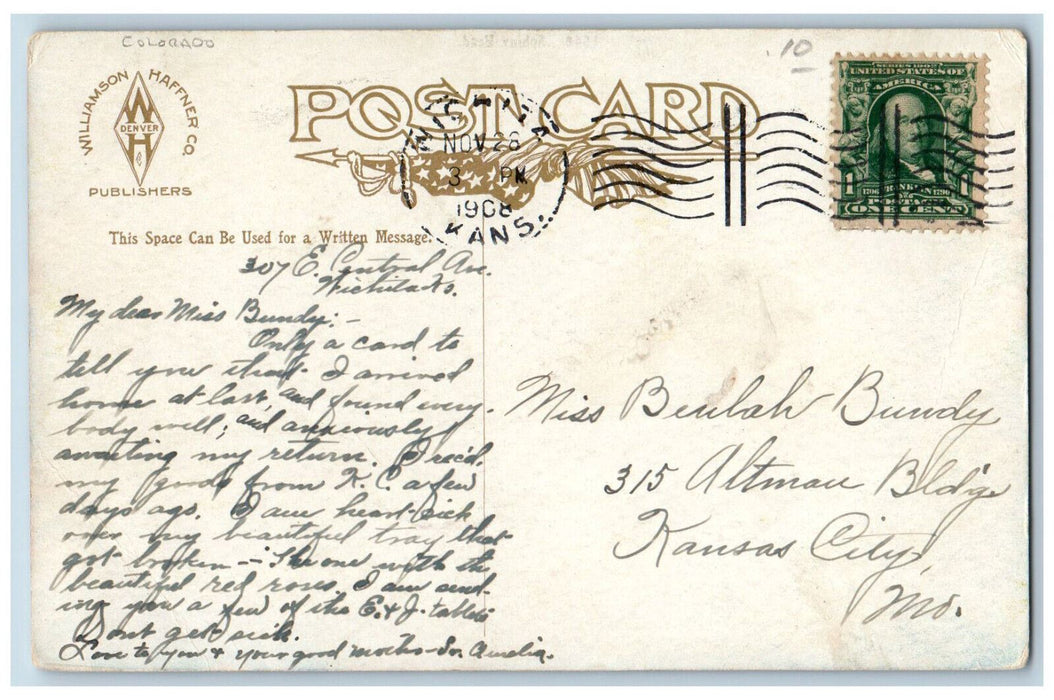 COLORADO
.10
WILLIAMSON HAFFNER CO.
WH
DENVER
PUBLISHERS
POST CARD
WICHITA
NOV 28
3 PM
1908
KANS.
SERIES 1902
UNITED STATES OF
AMERICA
1 1706 FRANKLIN 1790 1
POSTAGE
ONE CENT
This Space Can Be Used for a Written Message.
307 E. Central Ave.
Wichita Ks.
My dear Miss Bundy:-
Only a card to
tell you that I arrived
home at last and found every-
body well; and anxiously
awaiting my return. I rec'd.
my goods from K.C. a few
days ago. I am heart-sick
over my beautiful tray that
got broken - the one with the
beautiful red roses. I am send-
ing you a few of the E. & J. tablets
Dont get sick.
Love to you & your good mother - Sr. Aurelia.
Miss Beulah Bundy
315 Altman Bldg.
Kansas City,
Mo.